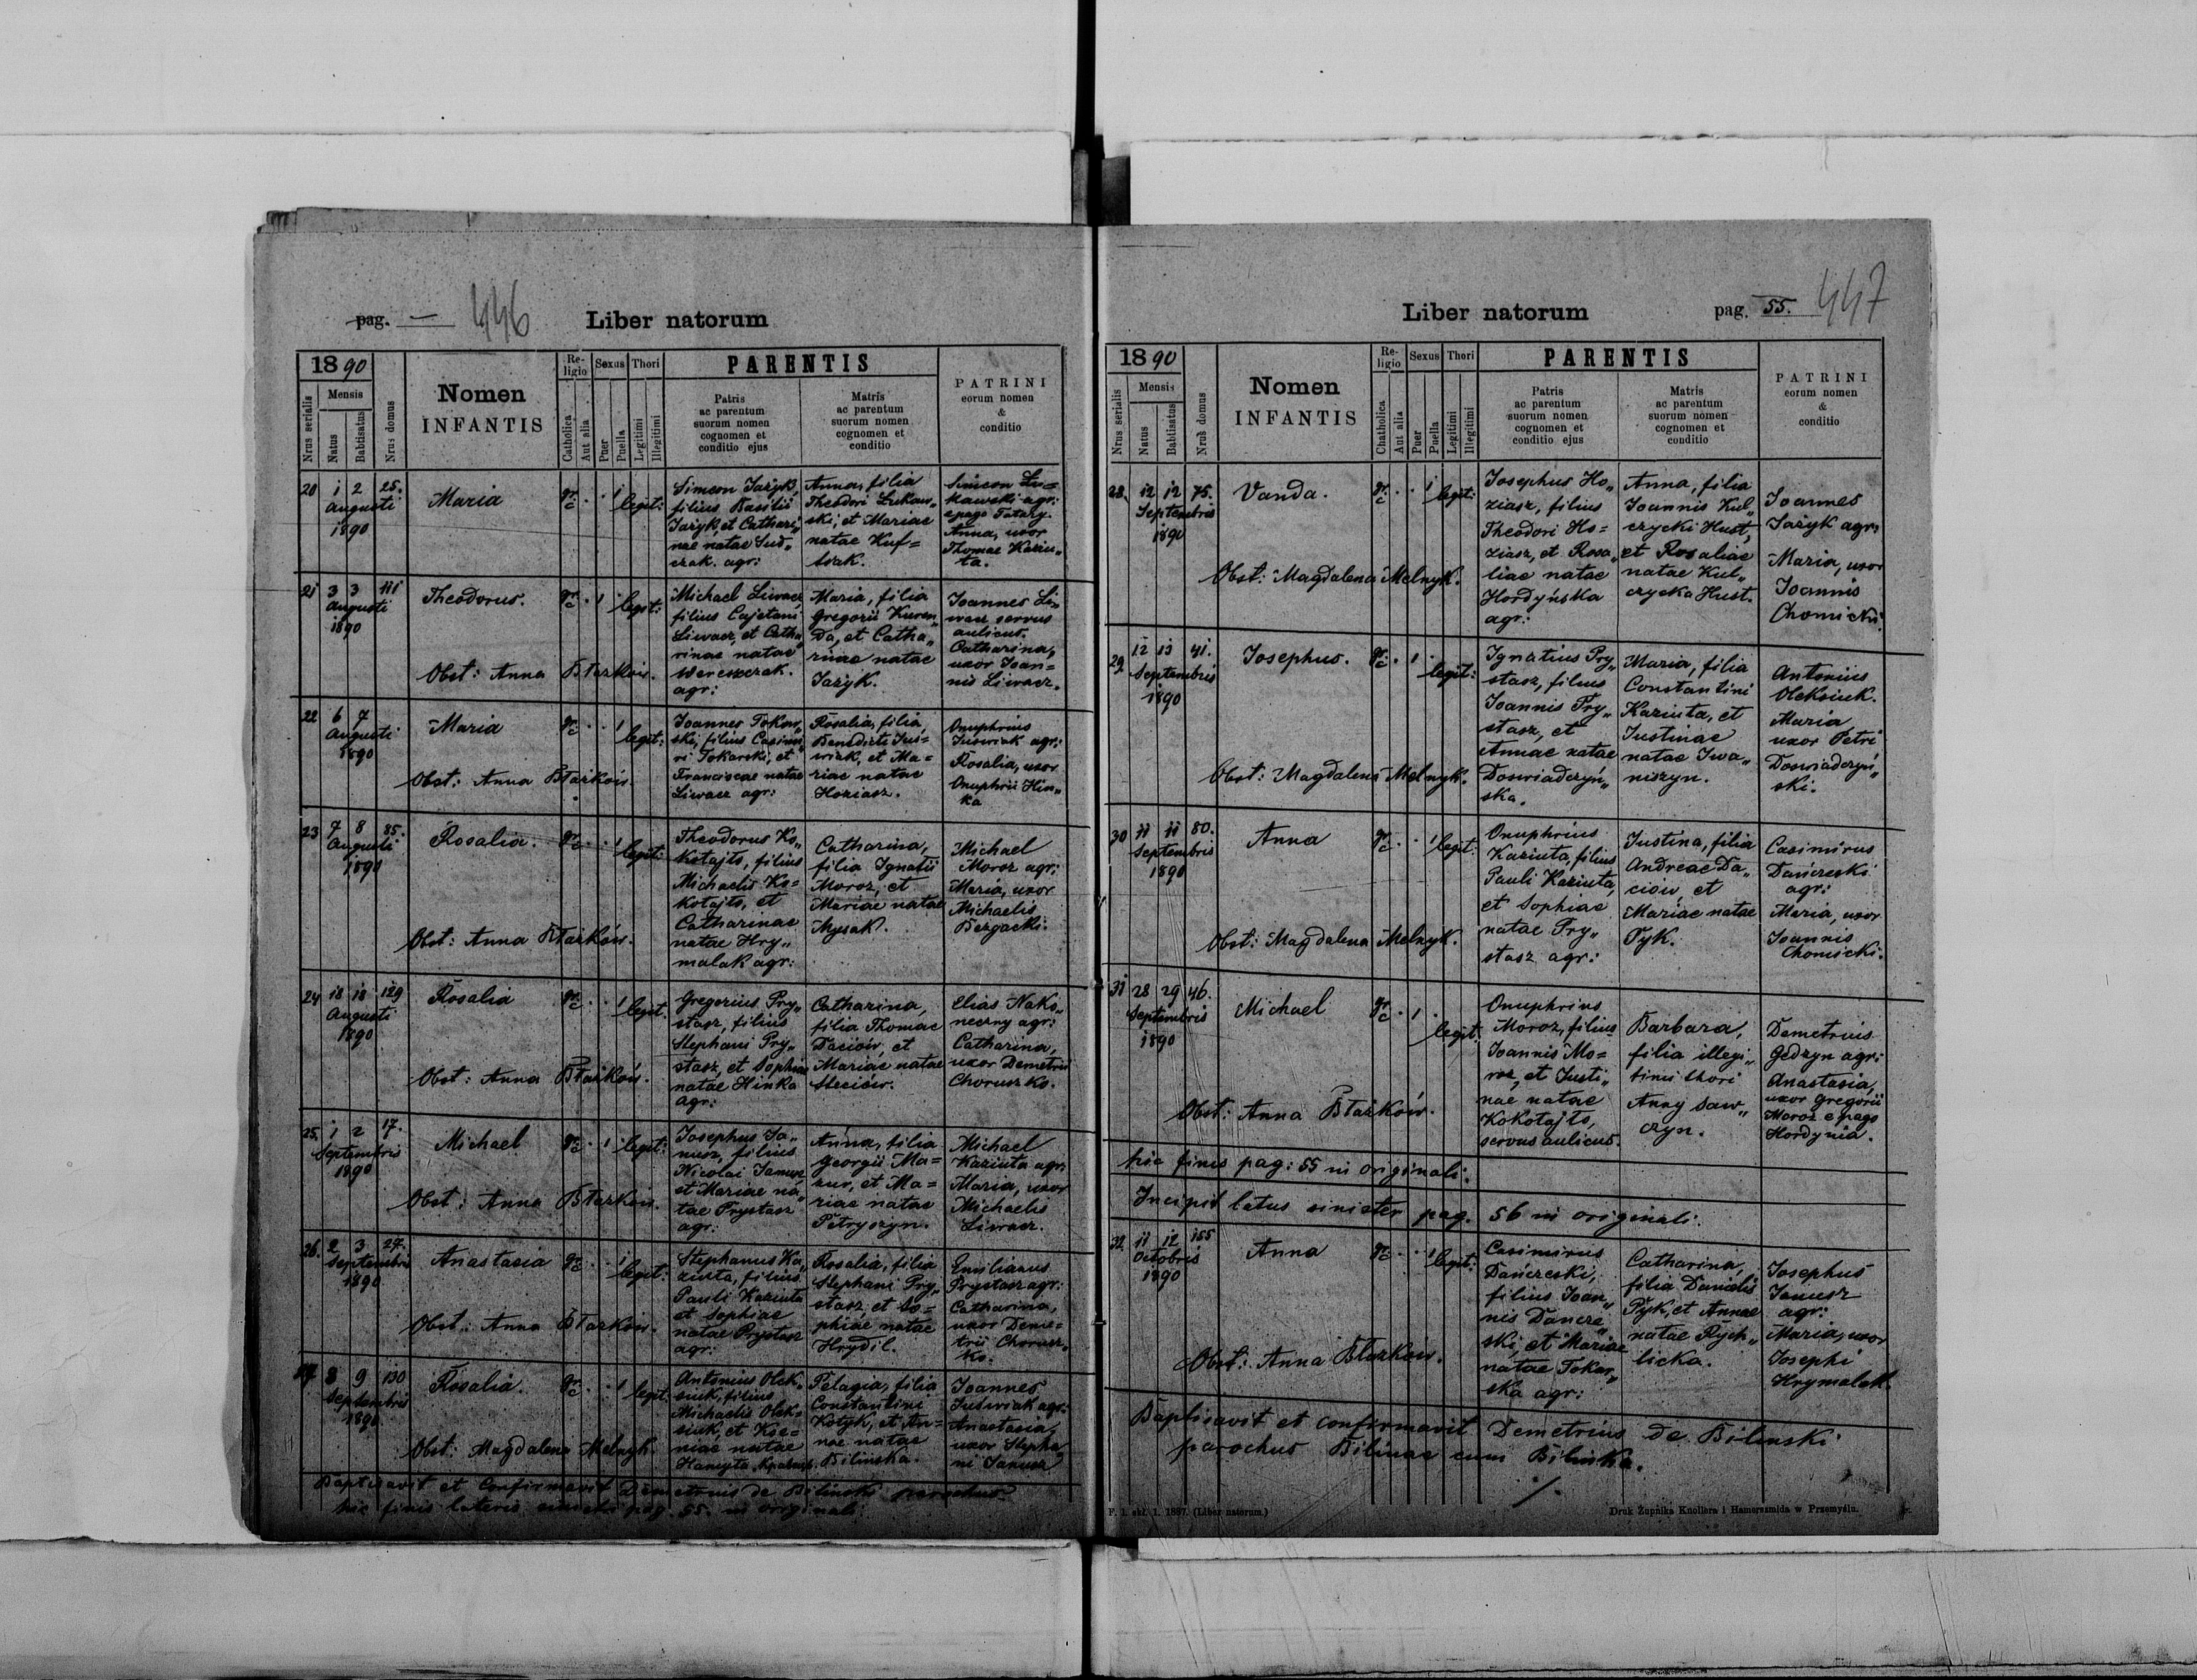 pag. — 446
Liber natorum
1890
Mensis
Nrus serialis
Natus
Babtisatus
Nrus domus
Nomen
INFANTIS
Re-
ligio
Catholica
Aut alia
Sexus
Puer
Puella
Thori
Legitimi
Illegitimi
PARENTIS
Patris
ac parentum
suorum nomen
cognomen et
conditio ejus
Matris
ac parentum
suorum nomen
cognomen et
conditio
PATRINI
eorum nomen
&
conditio
20 1 2 25.
Augusti
1890
Maria
gr. c. · · 1 legit:
Simeon Jażyk,
filius Basilii
Jażyk, et Cathari„
nae natae Sud„
czak. agr:
Anna, filia
Theodori Lukaw„
ski, et Mariae
natae Kuf=
trak.
Simeon Lu=
kawski agr:
e pago Tatary.
Anna, uxor
Thomae Kaziu„
ta.
21 3 3 111
Augusti
1890
Theodorus.
gr. c. · 1 · legit:
Obst: Anna Błażków.
Michael Liwacz,
filius Cajetani
Liwacz, et Catha„
rinae natae
Wereszczak.
agr:
Maria, filia
Gregorii Kuren„
da, et Catha„
rinae natae
Jażyk.
Joannes Li„
wacz servus
aulicus.
Catharina,
uxor Joan=
nis Liwacz.
22 6 7
Augusti
1890
Maria
gr. c. · · 1 legit:
Obst: Anna Błażków.
Joannes Tokar„
ski, filius Casimi„
ri Tokarski, et
Franciscae natae
Liwacz agr:
Rosalia, filia
Benedicti Jus=
wiak, et Ma=
riae natae
Hoziasz.
Onuphrius
Juswiak agr:
Rosalia, uxor
Onuphrii Hin„
ka
23 7 8 85.
Augusti
1890
Rosalia.
gr. c. · · 1 legit:
Obst: Anna Błażków.
Theodorus Ko„
kotajło, filius
Michaelis Ko=
kotajło, et
Catharinae
natae Hry„
malak agr:
Catharina,
filia Ignatii
Moroz, et
Mariae natae
Mysak.
Michael
Moroz agr:
Maria, uxor
Michaelis
Bezgacki.
24 18 18 129
Augusti
1890
Rosalia
gr. c. · · 1 legit.
Obst: Anna Błażków.
Gregorius Pry„
stasz, filius
Stephani Pry„
stasz, et Sophiae
natae Hinka
agr:
Catharina,
filia Thomae
Daciów, et
Mariae natae
Steciów.
Elias Nako„
neczny agr:
Catharina,
uxor Demetrii
Choruszko.
25. 1 2 17.
Septembris
1890
Michael
gr. c. · 1 · legit:
Obst: Anna Błażków.
Josephus Ja„
nusz, filius
Nicolai Janusz
et Mariae na„
tae Prystasz
agr:
Anna, filia
Georgii Ma=
zur, et Ma=
riae natae
Petryszyn.
Michael
Kaziuta agr:
Maria, uxor
Michaelis
Liwacz.
26. 2 3 27.
Septembris
1890
Anastasia
gr. c. · · 1 legit:
Obst: Anna Błażków.
Stephanus Ka„
ziuta, filius
Pauli Kaziuta
et Sophiae
natae Prystasz
agr:
Rosalia, filia
Stephani Pry„
stasz, et So=
phiae natae
Hrydil.
Emilianus
Prystasz agr:
Catharina,
uxor Deme=
trii Chorusz„
ko.
27. 8 9 130
Septembris
1890
Rosalia.
gr. c. · · 1 legit.
Obst: Magdalena Melnyk.
Antonius Olek„
siuk, filius
Michaelis Olek=
siuk, et Xse=
niae natae
Pelagia, filia
Constantini
Kotyk, et An=
nae natae
Bilinska.
Joannes
Juswiak agr:
Anastasia,
uxor Stepha„
ni Janusz
Baptisavit et Confirmavit Demetrius de Bilinski parochus
hic finis lateris sinistri pag. 55. in originali.
Liber natorum
pag. 55. 447
1890
Mensis
Nrus serialis
Natus
Babtisatus
Nrus domus
Nomen
INFANTIS
Re-
ligio
Chatholica
Aut alia
Sexus
Puer
Puella
Thori
Legitimi
Illegitimi
PARENTIS
Patris
ac parentum
suorum nomen
cognomen et
conditio ejus
Matris
ac parentum
suorum nomen
cognomen et
conditio
PATRINI
eorum nomen
&
conditio
28. 12 12 75.
Septembris
1890
Vanda.
gr. c. · · 1 legit:
Obst: Magdalena Melnyk.
Josephus Ho„
ziasz, filius
Theodori Ho=
ziasz, et Rosa„
liae natae
Hordyńska
agr:
Anna, filia
Joannis Kul„
czycki Hust,
et Rosaliae
natae Kul„
czycka Hust.
Joannes
Jażyk agr:
Maria, uxor
Joannis
Chomicki.
29. 12 13 41.
Septembris
1890
Josephus.
gr. c. · 1 · legit:
Obst: Magdalena Melnyk.
Ignatius Pry„
stasz, filius
Joannis Pry„
stasz, et
Annae natae
Doswiadczyń„
ska.
Maria, filia
Constantini
Kaziuta, et
Justinae
natae Iwa„
niszyn.
Antonius
Oleksiuk.
Maria
uxor Petri
Doswiadczyń„
ski.
30 11 11 80.
Septembris
1890
Anna
gr. c. · · 1 legit:
Obst: Magdalena Melnyk.
Onuphrius
Kaziuta, filius
Pauli Kaziuta,
et Sophiae
natae Pry„
stasz agr:
Justina, filia
Andreae Da„
ciów, et
Mariae natae
Pyk.
Casimirus
Dańczeski
agr:
Maria, uxor
Joannis
Chomicki.
31 28 29 46.
Septembris
1890
Michael
gr. c. · 1 · legit:
Obst: Anna Błażków.
Onuphrius
Moroz, filius
Joannis Mo=
roz, et Justi„
nae natae
Kokotajło,
servus aulicus.
Barbara,
filia illegi„
timi thori
Anny Saw„
czyn.
Demetrius
Gedzyn agr:
Anastasia,
uxor Gregorii
Moroz e pago
Hordynia.
hic finis pag: 55 in originali.
Incipit latus sinister pag. 56 in originali.
32. 11 12 155
Octobris
1890
Anna
gr. c. · · 1 legit:
Obst: Anna Błażków.
Casimirus
Dańczeski,
filius Joan„
nis Dancze„
ski, et Mariae
natae Tokar„
ska agr:
Catharina,
filia Danielis
Pyk, et Annae
natae Rych„
licka.
Josephus
Janusz
agr:
Maria, uxor
Josephi
Hrymalak.
Baptisavit et confirmavit Demetrius de Bilinski
parochus Bilinae cum Bilinka.
F. 1. skł. 1. 1887. (Liber natorum.)
Druk Żupnika Knollera i Hamerszmida w Przemyślu.